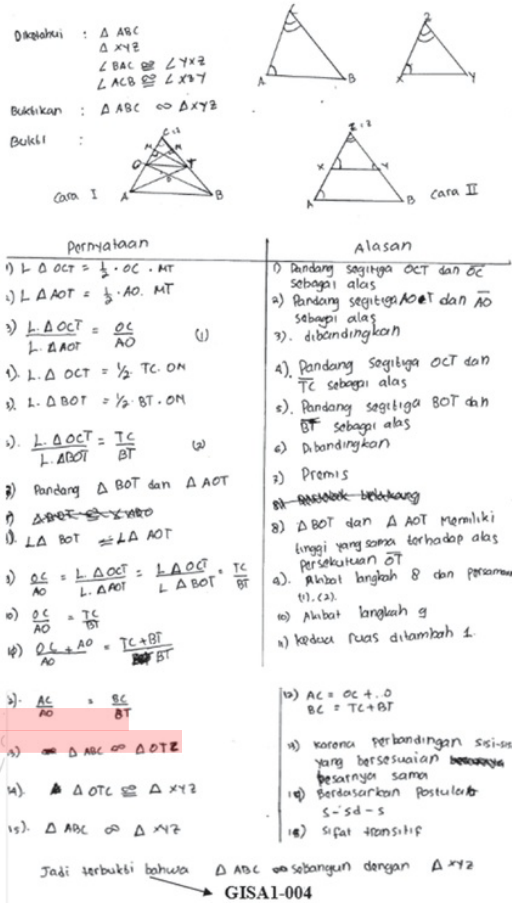 Diketahui : Δ ABC
Δ XYZ
∠BAC ≅ ∠YXZ
∠ACB ≅ ∠XZY
Buktikan : Δ ABC ∞ ΔXYZ
Bukti :
A B
X Y
Z
Cara I
A B
Cara II
A B
X Y
Pernyataan
Alasan
1) L Δ OCT = ½ . OC . MT
1) Pandang segitiga OCT dan OC sebagai alas
2) L Δ AOT = ½ . AO. MT
2) Pandang segitiga AOT dan AO sebagai alas
3) L.ΔOCT / L.ΔAOT = OC / AO (1)
3). dibandingkan
4). L.Δ OCT = ½. TC. ON
4). Pandang segitiga OCT dan TC sebagai alas
5). L.Δ BOT = ½. BT. ON
5). Pandang segitiga BOT dan BT sebagai alas
6). L.ΔOCT / L.ΔBOT = TC / BT (2)
6) Dibandingkan
7) Pandang Δ BOT dan Δ AOT
7) Premis
8). LΔ BOT = LΔ AOT
8) Δ BOT dan Δ AOT memiliki
tinggi yang sama terhadap alas
persekutuan OT
9) OC / AO = L.ΔOCT / L.ΔAOT = L ΔOCT / L ΔBOT = TC / BT
9). Akibat langkah 8 dan persamaan
(1).(2).
10) OC / AO = TC / BT
10) Akibat langkah 9
OC + AO / AO = TC+BT / BT
11) kedua ruas ditambah 1.
12). AC / AO = BC / BT
12) AC = OC +
BC = TC + BT
13) Δ ABC ∞ Δ OTZ
Karena perbandingan sisi-sisi
yang bersesuaian
besarnya sama
14). Δ OTC ≅ Δ XYZ
Berdasarkan Postulat
s-sd-s
15). Δ ABC ∞ Δ XYZ
sifat transitif
Jadi terbukti bahwa Δ ABC ∞ sebangun dengan Δ XYZ
GISA1-004